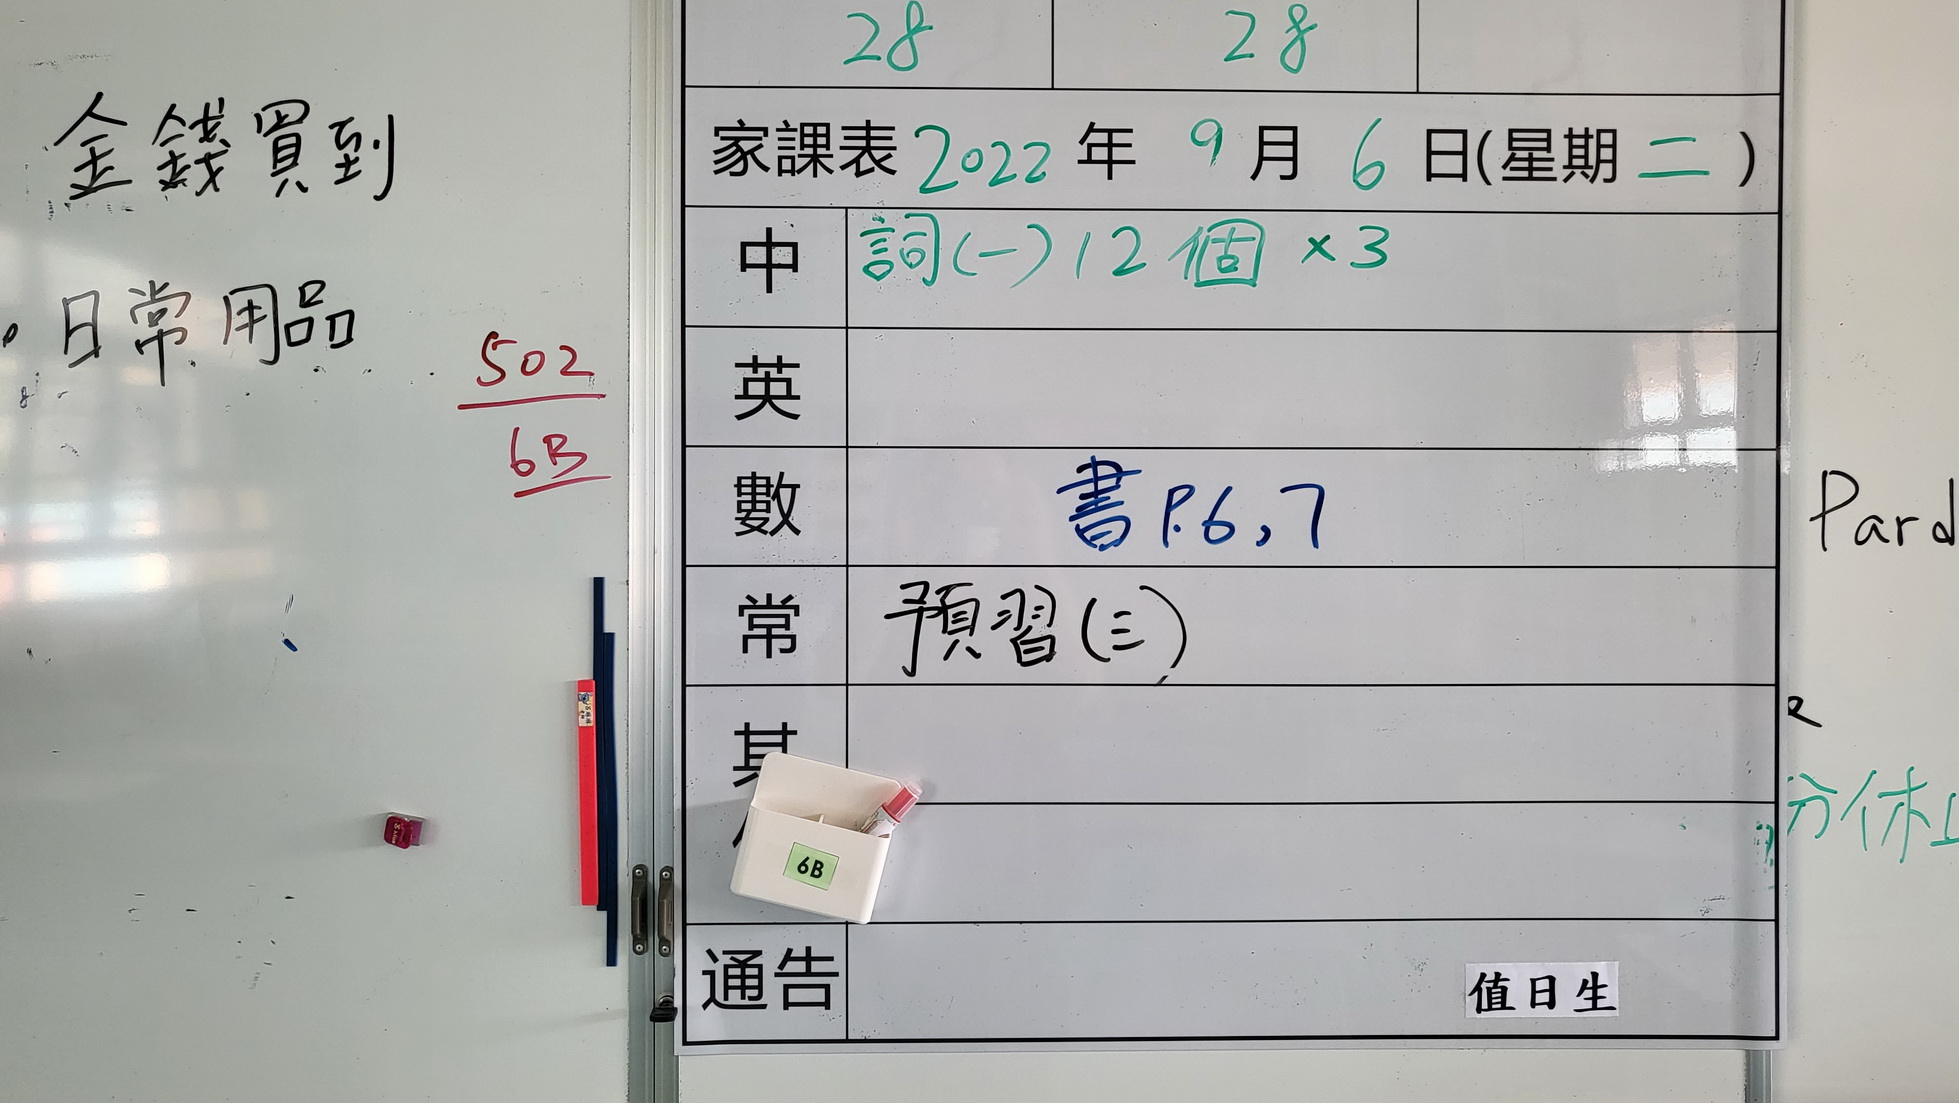 金錢買到
日常用品
502
6B
28 28
家課表 2022 年 9 月 6 日(星期 二 )
中 詞(一)12個 ×3
英
數 書 P.6,7
常 預習(三)
其
6B
通告
值日生
Pard
分休